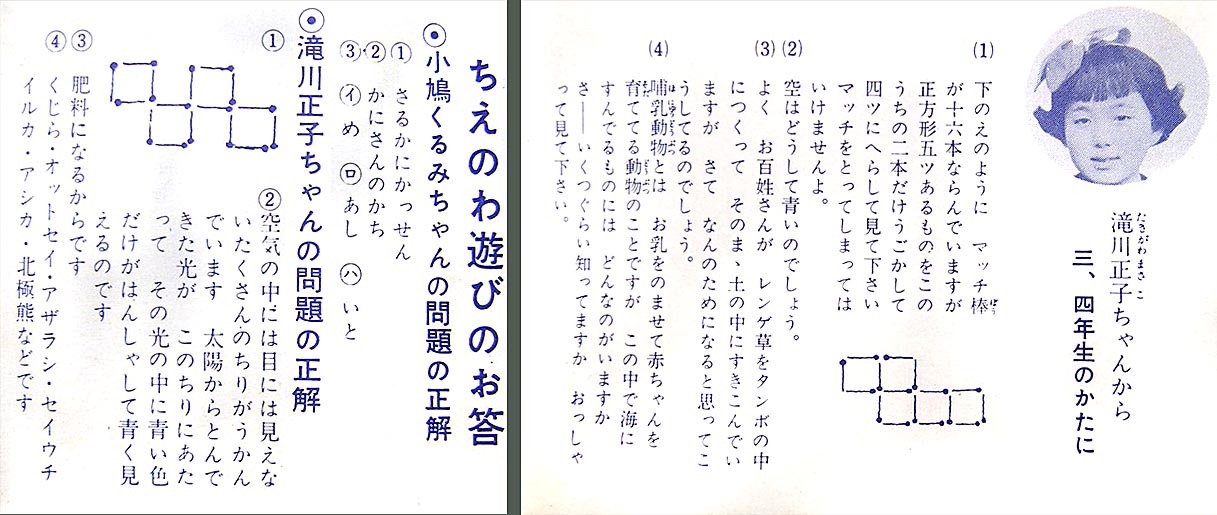 滝川正子ちゃんから
三、四年生のかたに
(1) 下のえのように　マッチ棒
が十六本ならんでいますが
正方形五ツあるものをこの
うちの二本だけうごかして
四ツにへらして見て下さい
マッチをとってしまっては
いけませんよ。
(2) 空はどうして青いのでしょう。
(3) よく　お百姓さんが　レンゲ草をタンボの中
につくって　そのまゝ土の中にすきこんでい
ますが　さて　なんのためになると思ってこ
うしてるのでしょう。
(4) 哺乳動物とは　お乳をのませて赤ちゃんを
育ててる動物のことですが　この中で海に
すんでるものには　どんなのがいますか
さ――いくつぐらい知ってますか　おっしゃ
って見て下さい。
ちえのわ遊びのお答
◉小鳩くるみちゃんの問題の正解
① さるかにかっせん
② かにさんのかち
③ ㋑め ㋺あし ㋩いと
◉滝川正子ちゃんの問題の正解
①
② 空気の中には目には見えな
いたくさんのちりがうかん
でいます　太陽からとんで
きた光が　このちりにあた
って　その光の中に青い色
だけがはんしゃして青く見
えるのです
③ 肥料になるからです
④ くじら・オットセイ・アザラシ・セイウチ
イルカ・アシカ・北極熊などです